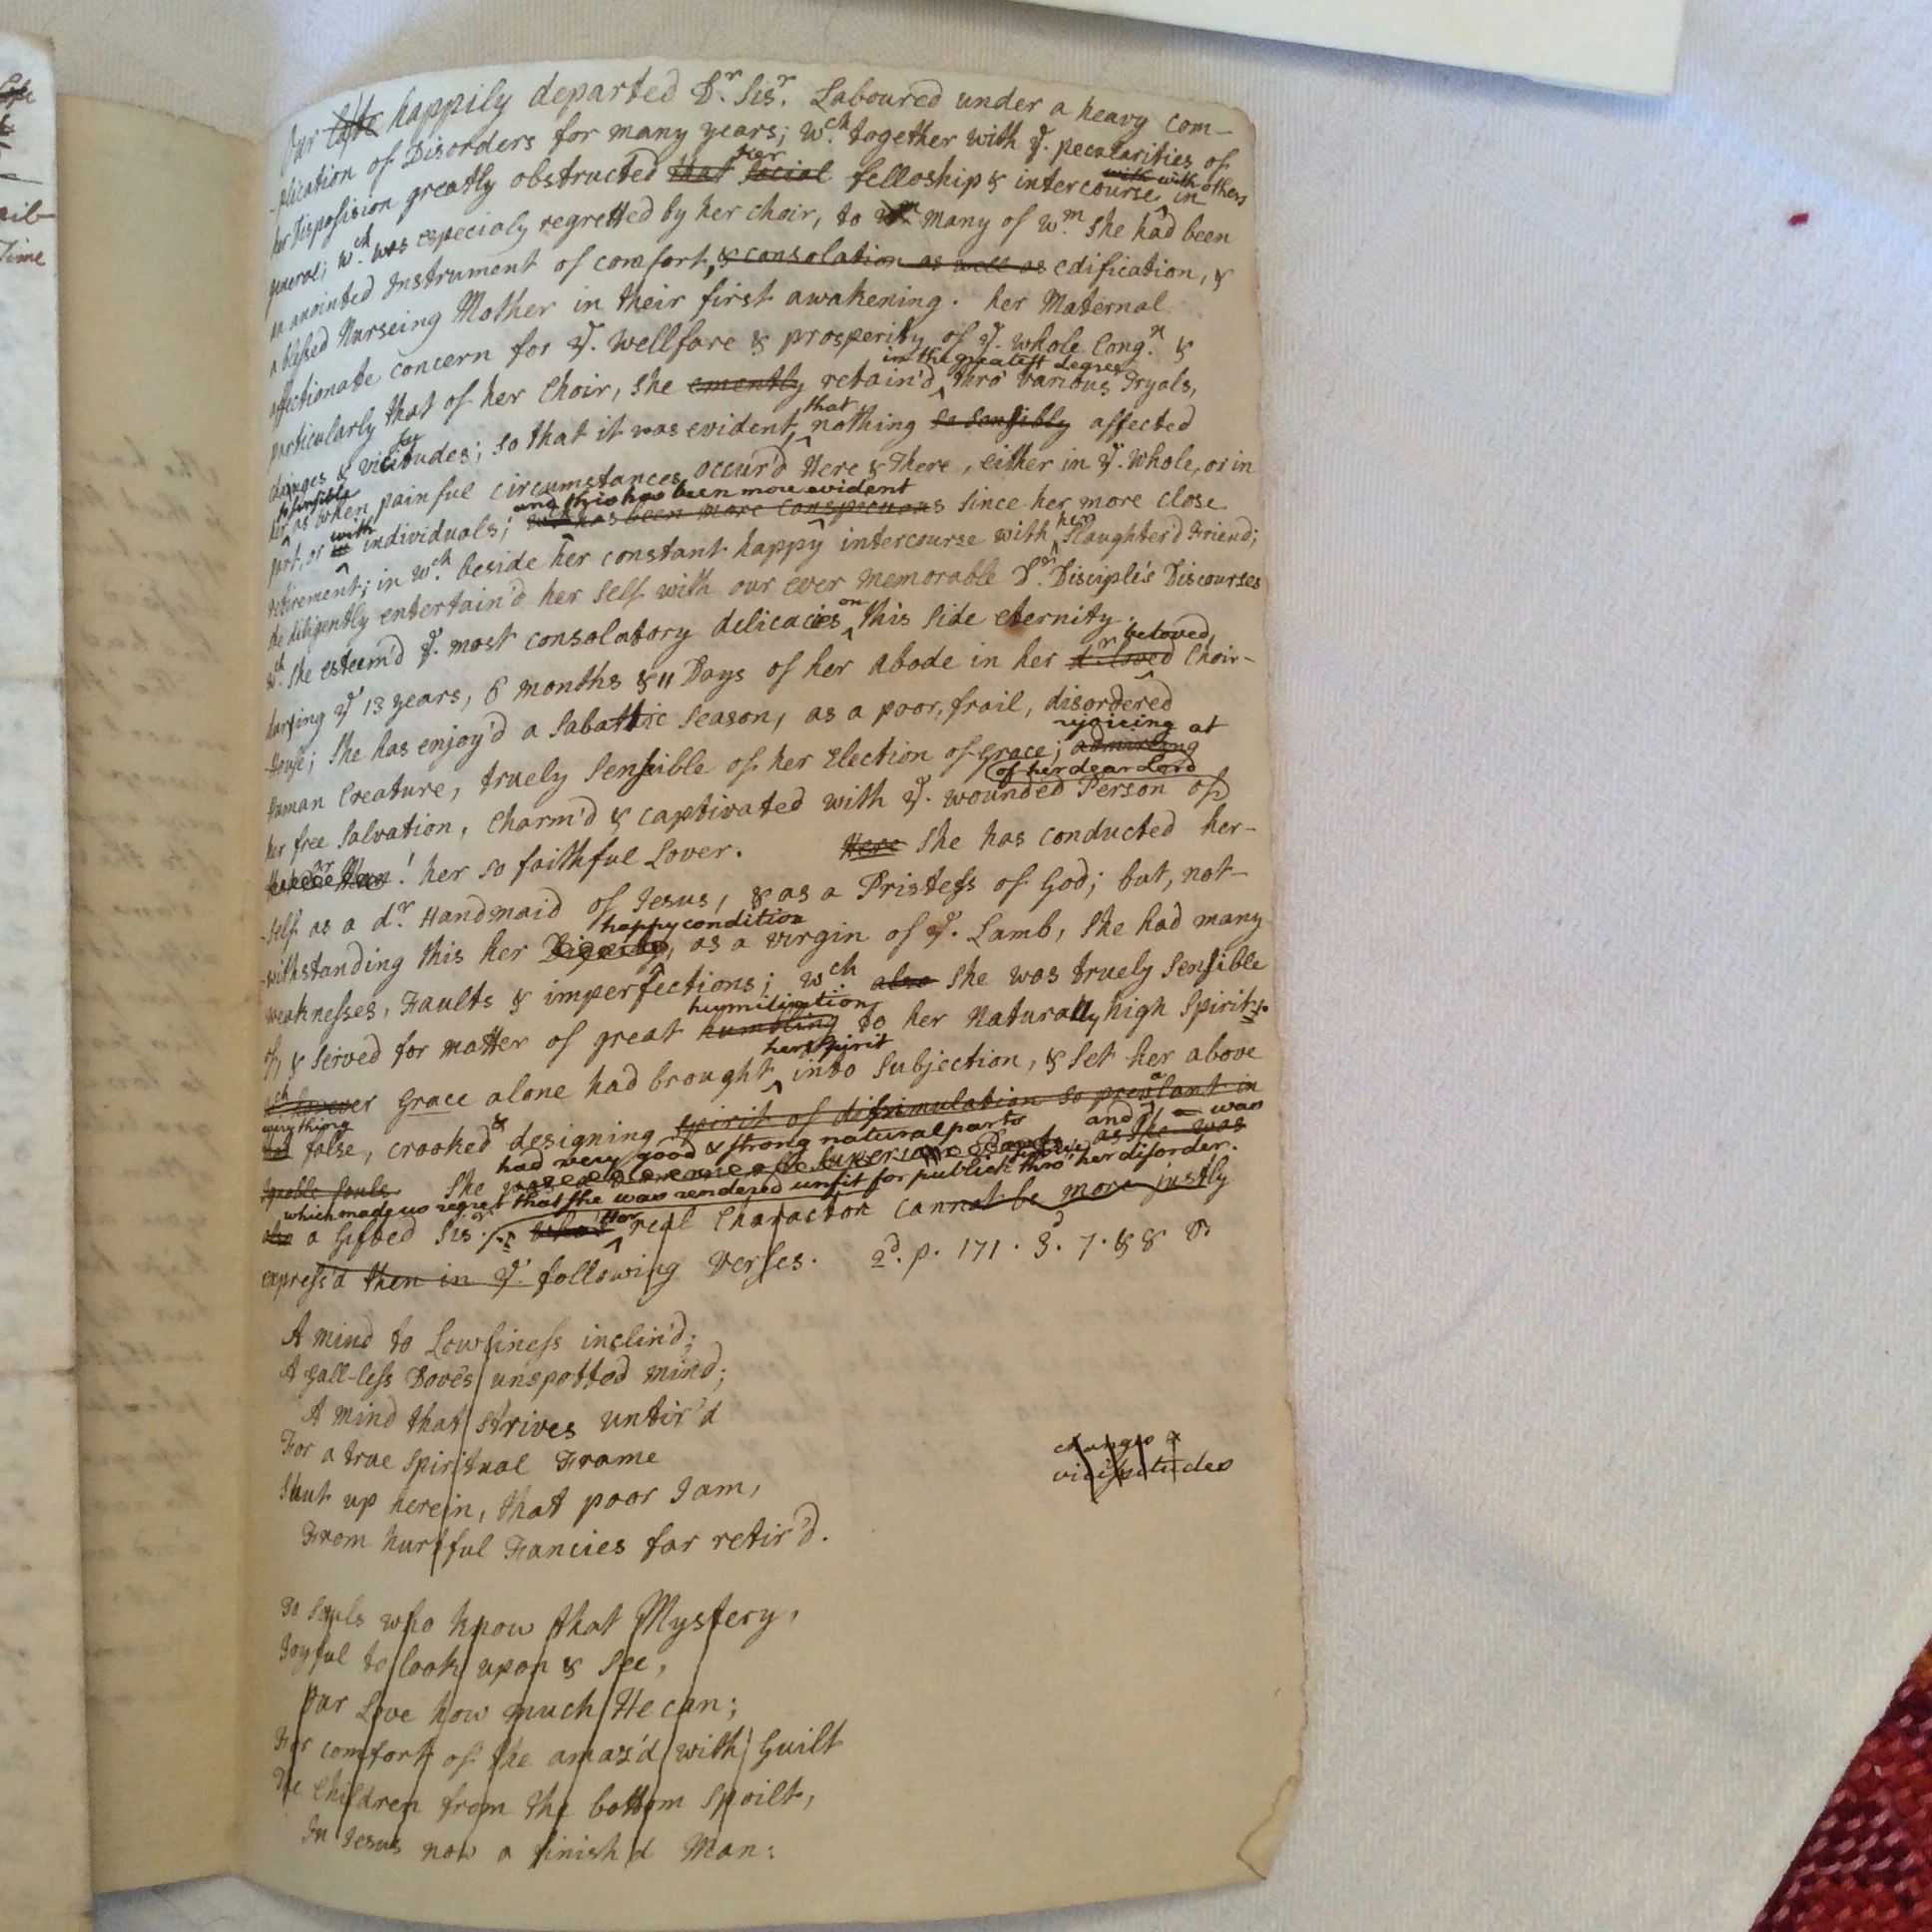 Our late happily departed Dr. Sisr. Laboured under a heavy com-
-plication of Disorders for many years; wch. together with ye. pecularities of
her Disposision greatly obstructed that social her felloship & intercourse with with others in
general; wch. was especialy regretted by her choir, to many of wm. she had been
an anointed Instrument of comfort, & consolation as well as edification, &
a blessed Nurseing Mother in their first awakening. her Maternal
affectionate concern for ye. wellfare & prosperity of ye. whole Congn. &
particularly that of her Choir, she emently retain'd in the greatest degree thro' various Tryals,
changes & vicissitudes; so that it was evident, that nothing so sensibly affected
her sensible as when painful circumstances occur'd Here & There, either in ye. whole, or in
part, or in with individuals; and this has been more evident wch has been more conspicuous since her more close
retirement; in wch. beside her constant happy intercourse with her Slaughter'd Friend;
she diligently entertain'd her self with our ever memorable Dr. Disciple's Discourses
wch. she esteem'd ye. most consolatory delicacies on this side eternity.
during ye 13 years, 6 months & 11 Days of her abode in her dr loved beloved Choir-
-House; she has enjoy'd a Sabattic season, as a poor, frail, disordered
Human Creature, truely sensible of her Election of Grace; admireing rejoicing at
her free salvation, Charm'd & captivated with ye. wounded Person of of her dear Lord
! her so faithful Lover. Here she has conducted her-
-self as a dr. Handmaid of Jesus, & as a Pristess of God; but, not-
-withstanding this her Dignity happy condition, as a virgin of ye. Lamb, she had many
weaknesses, Faults & imperfections; wch. also she was truely sensible
of, & served for matter of great humbling humiliation to her Naturally high spirits.
wch however Grace alone had brought her spirit into subjection, & set her above
everything false, crooked & designing spirit of dissimulation so prevalant in
ignoble souls. She had very good & strong natural parts and was as she was
which made us regret that she was rendered unfit for publick thro' her disorder.
also a Gifted Sisr. what Her real Character cannot be more justly
express'd then in ye. following verses. 2d. p. 171. 3. 7. & 8 v.
A mind to Lowliness inclin'd;
A gall-less Dove's unspotted mind;
A mind that strives untir'd
For a true spiritual Frame
Shut up herein, that poor I am,
From hurtful Fancies far retir'd.
changes &
vicissitudes
To Souls who know that Mystery,
Joyful to look upon & see,
Our Love how much He can;
For comfort of the amaz'd with Guilt
The Children from the bottom spoilt,
In Jesus now a finish'd Man: